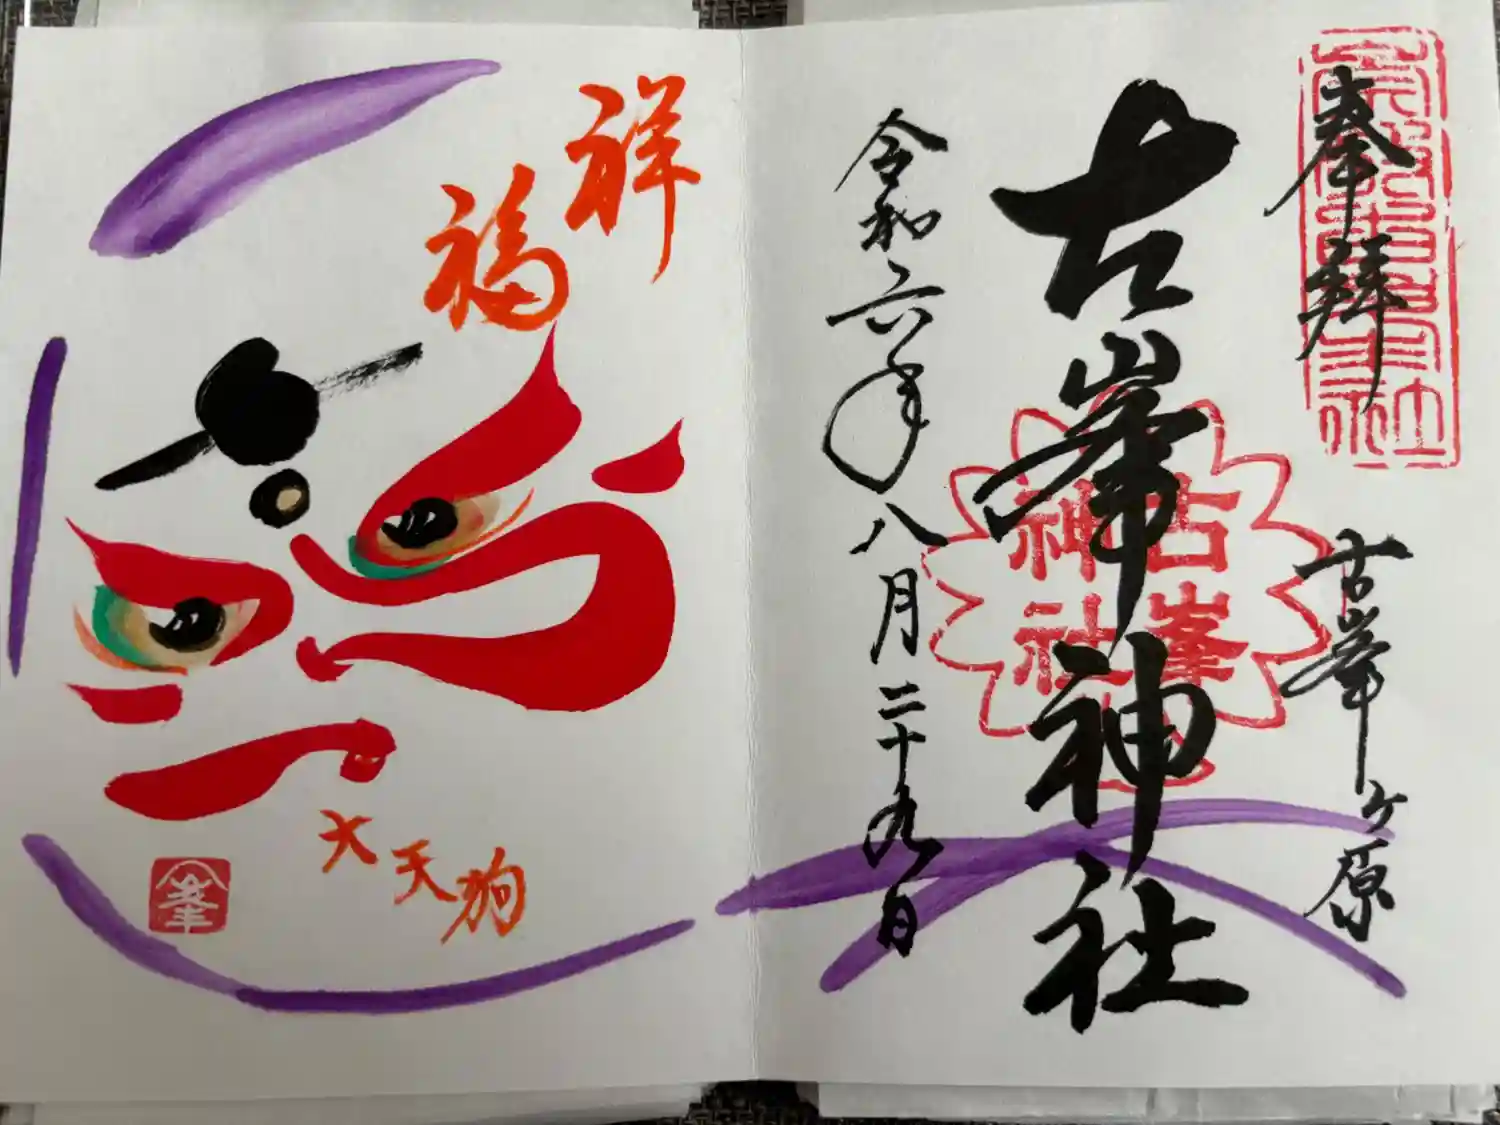 奉拝
古峯ヶ原
古峯神社
古峯
神社
令和六年八月二十九日
祥
福
大天狗
峯